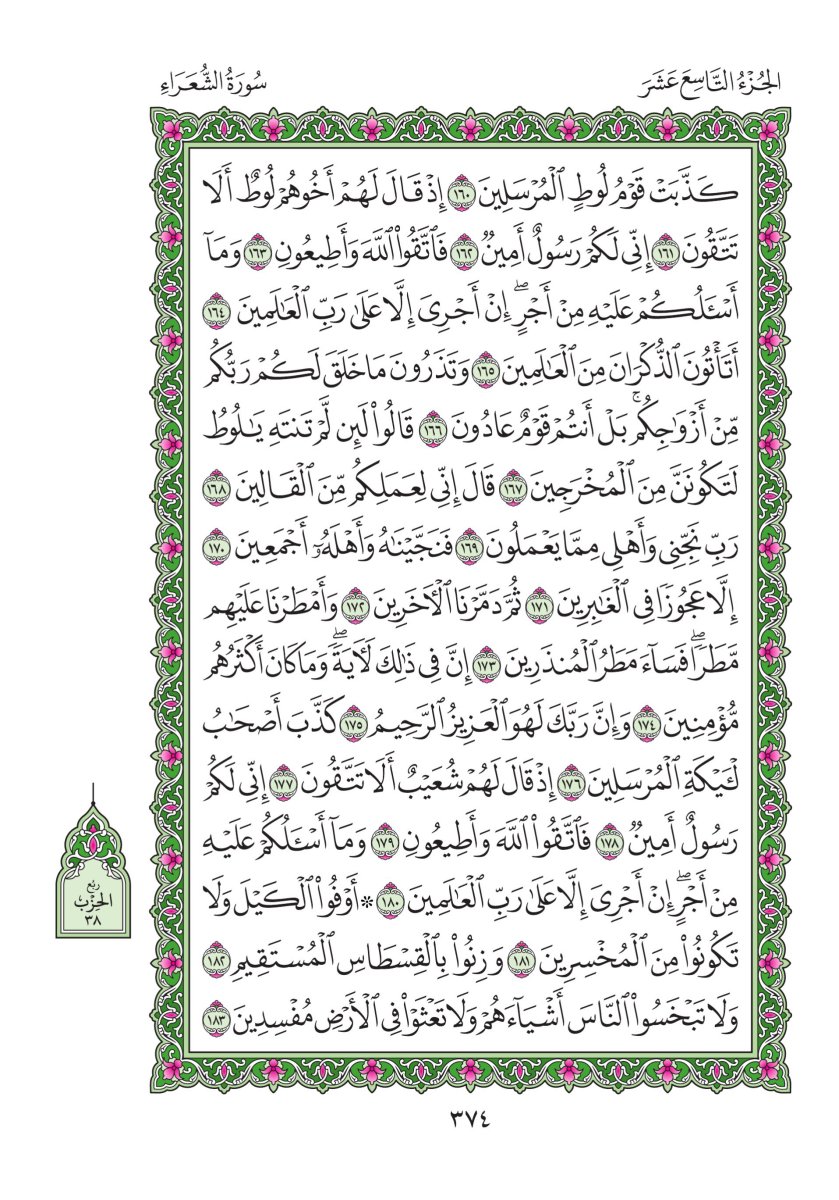 الجُزْءُ التَّاسِعَ عَشَرَ
سُورَةُ الشُّعَرَاءِ
كَذَّبَتْ قَوْمُ لُوطٍ ٱلْمُرْسَلِينَ ١٦٠ إِذْ قَالَ لَهُمْ أَخُوهُمْ لُوطٌ أَلَا
تَتَّقُونَ ١٦١ إِنِّي لَكُمْ رَسُولٌ أَمِينٌ ١٦٢ فَٱتَّقُوا۟ ٱللَّهَ وَأَطِيعُونِ ١٦٣ وَمَآ
أَسْـَٔلُكُمْ عَلَيْهِ مِنْ أَجْرٍۖ إِنْ أَجْرِىَ إِلَّا عَلَىٰ رَبِّ ٱلْعَـٰلَمِينَ ١٦٤
أَتَأْتُونَ ٱلذُّكْرَانَ مِنَ ٱلْعَـٰلَمِينَ ١٦٥ وَتَذَرُونَ مَا خَلَقَ لَكُمْ رَبُّكُم
مِّنْ أَزْوَٰجِكُمۚ بَلْ أَنتُمْ قَوْمٌ عَادُونَ ١٦٦ قَالُوا۟ لَئِن لَّمْ تَنتَهِ يَـٰلُوطُ
لَتَكُونَنَّ مِنَ ٱلْمُخْرَجِينَ ١٦٧ قَالَ إِنِّي لِعَمَلِكُم مِّنَ ٱلْقَالِينَ ١٦٨
رَبِّ نَجِّنِى وَأَهْلِى مِمَّا يَعْمَلُونَ ١٦٩ فَنَجَّيْنَـٰهُ وَأَهْلَهُۥٓ أَجْمَعِينَ ١٧٠
إِلَّا عَجُوزًا فِى ٱلْغَـٰبِرِينَ ١٧١ ثُمَّ دَمَّرْنَا ٱلْـَٔاخَرِينَ ١٧٢ وَأَمْطَرْنَا عَلَيْهِم
مَّطَرًاۖ فَسَآءَ مَطَرُ ٱلْمُنذَرِينَ ١٧٣ إِنَّ فِى ذَٰلِكَ لَـَٔايَةًۖ وَمَا كَانَ أَكْثَرُهُم
مُّؤْمِنِينَ ١٧٤ وَإِنَّ رَبَّكَ لَهُوَ ٱلْعَزِيزُ ٱلرَّحِيمُ ١٧٥ كَذَّبَ أَصْحَـٰبُ
لْـَٔيْكَةِ ٱلْمُرْسَلِينَ ١٧٦ إِذْ قَالَ لَهُمْ شُعَيْبٌ أَلَا تَتَّقُونَ ١٧٧ إِنِّي لَكُمْ
رَسُولٌ أَمِينٌ ١٧٨ فَٱتَّقُوا۟ ٱللَّهَ وَأَطِيعُونِ ١٧٩ وَمَآ أَسْـَٔلُكُمْ عَلَيْهِ
مِنْ أَجْرٍۖ إِنْ أَجْرِىَ إِلَّا عَلَىٰ رَبِّ ٱلْعَـٰلَمِينَ ١٨٠ ۞ أَوْفُوا۟ ٱلْكَيْلَ وَلَا
تَكُونُوا۟ مِنَ ٱلْمُخْسِرِينَ ١٨١ وَزِنُوا۟ بِٱلْقِسْطَاسِ ٱلْمُسْتَقِيمِ ١٨٢
وَلَا تَبْخَسُوا۟ ٱلنَّاسَ أَشْيَآءَهُمْ وَلَا تَعْثَوْا۟ فِى ٱلْأَرْضِ مُفْسِدِينَ ١٨٣
رُبُع
الحِزْب
٣٨
٣٧٤